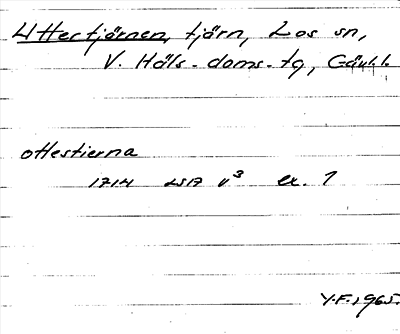 Uttertjärnen, tjärn, Los sn,
V. Häls. doms. tg, Gävl.l.
ottestierna
1714 LSA v³ ex. 1
Y.F. 1965.